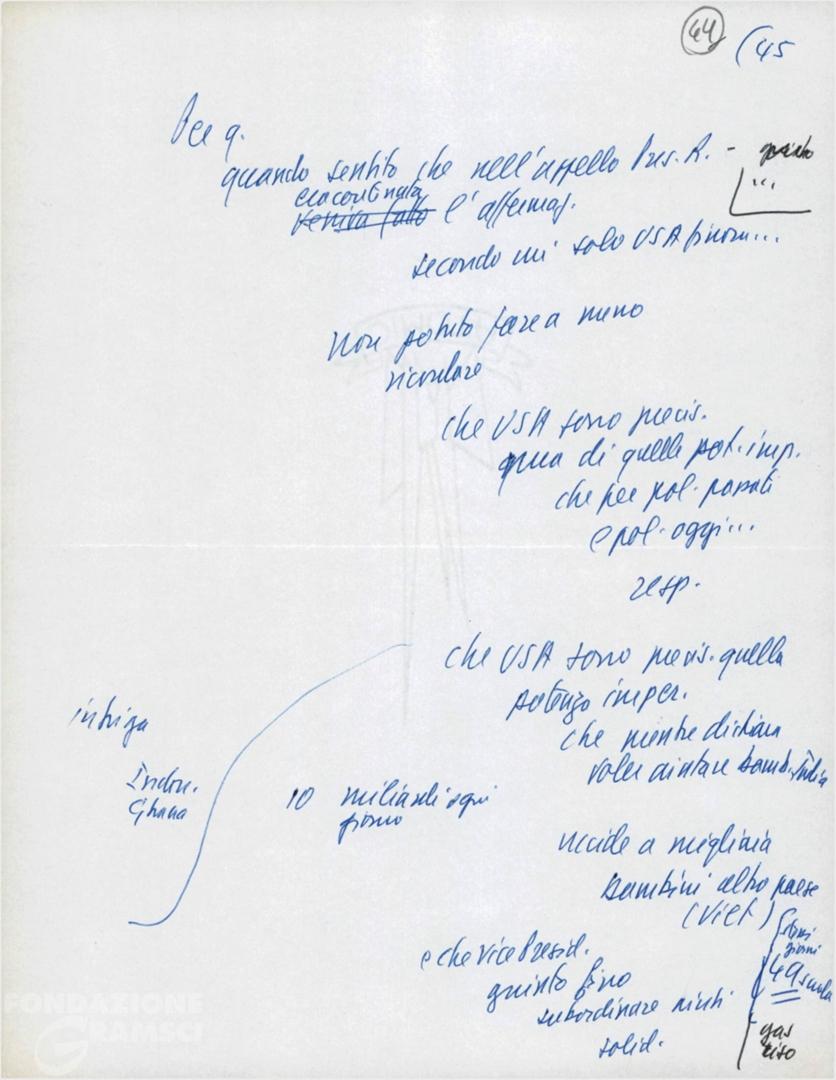 44 (45
Per q.
quando sentito che nell'appello Pres. R. - quanto
...
era contenuta
veniva fatta l'affermaz.
secondo cui solo USA finora...
Non potuto fare a meno
ricordare
che USA sono precis.
una di quelle pot. imp.
che per pol. passati
e pol. oggi...
resp.
che USA sono precis. quella
potenza imper.
che mentre dichiara
voler aiutare bamb. India
intriga
Indon.
Ghana
10 miliardi ogni
giorno
uccide a migliaia
bambini altro paese
(Viet)
giorni
49 scuola
e che Vice Presid.
giunto fino
subordinare aiuti
solid.
gas
riso
FONDAZIONE
GRAMSCI